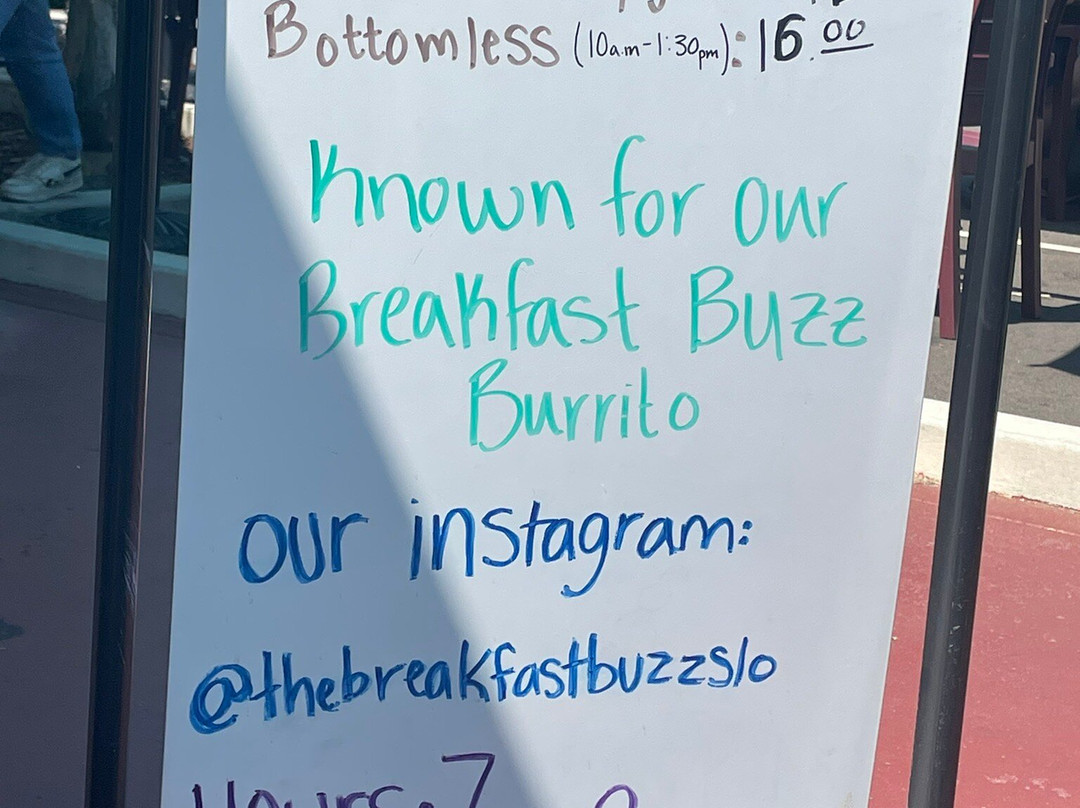 Bottomless (10am-1:30pm): 16.00
Known for our
Breakfast Buzz
Burrito
our instagram:
@thebreakfastbuzzslo
Hours: 7